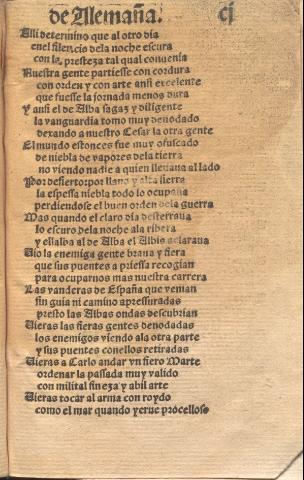 de Alemaña. cj
Alli determino que al otro dia
enel silencio dela noche escura
con la presteza tal qual conuenia
Nuestra gente partiesse con cordura
con orden y con arte ansi excelente
que fuesse la jornada menos dura
Y ansi el de Alba sagaz y diligente
la vanguardia tomo muy denodado
dexando a nuestro Cesar la otra gente
El mundo estonces fue muy ofuscado
de niebla de vapores dela tierra
no viendo nadie a quien lleuaua al lado
Por desierto: por llano y alta sierra
la espessa niebla todo lo ocupaua
perdiendose el buen orden dela guerra
Mas quando el claro dia desterraua
lo escuro dela noche ala ribera
y ellalba al de Alba el Albis aclaraua
Uio la enemiga gente braua y fiera
que sus puentes a priessa recogian
para ocuparnos mas nuestra carrera
Las vanderas de España que venian
sin guia ni camino apressuradas
presto las Albas ondas descubrian
Uieras las fieras gentes denodadas
los enemigos viendo ala otra parte
y sus puentes conellos retiradas
Uieras a Carlo andar vn fiero Marte
ordenar la passada muy valido
con milital fineza y abil arte
Uieras tocar al arma con roydo
como el mar quando yerue procelloso